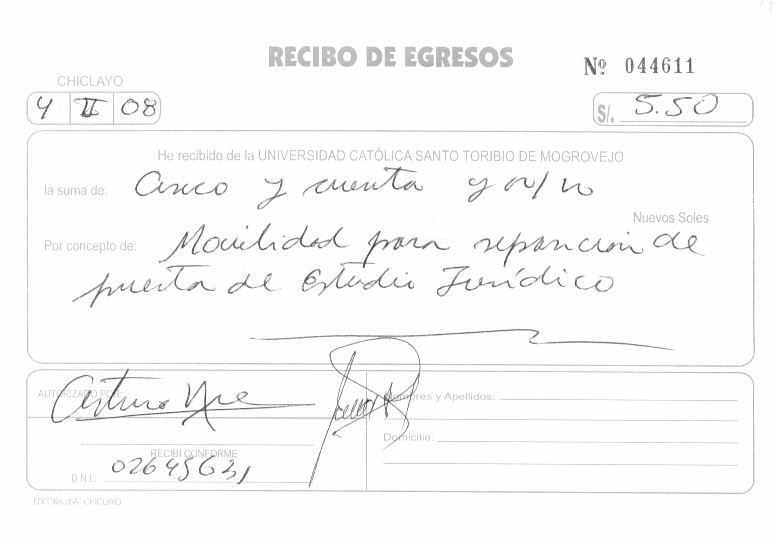 RECIBO DE EGRESOS
Nº 044611
CHICLAYO
4 II 08
S/. 5.50
He recibido de la UNIVERSIDAD CATÓLICA SANTO TORIBIO DE MOGROVEJO
la suma de: Cinco y cuenta y 00/00
Nuevos Soles
Por concepto de: Movilidad para reparacion de
puerta de Estudio Jurídico
AUTORIZADO POR:
Arturo
Nombres y Apellidos:
Domicilio:
RECIBI CONFORME
D.N.I.: 02645631
EDITORA USAT-CHICLAYO